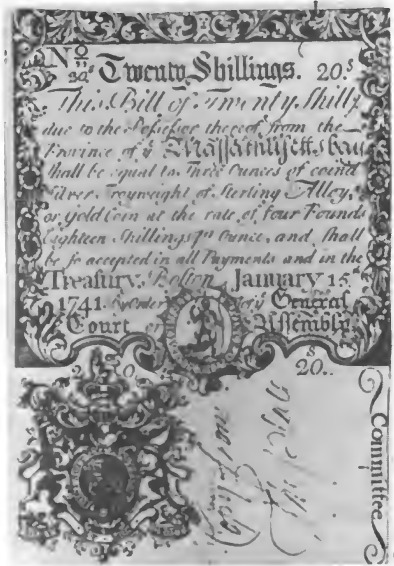 No Twenty Shillings. 20.s
This Bill of Twenty Shillgs
due to the Possessor thereof from the
Province of ye Massachusetts bay
Shall be equal to Three Ounces of coind
Silver, Troyweight of Sterling Alloy,
or Gold Coin at the rate of four Pounds
Eighteen Shillings pr Ounce, and Shall
be so accepted in all Payments and in the
Treasury. Boston January 15.
1741. By Order General
Court or Assembly
20
s
20..
Committee